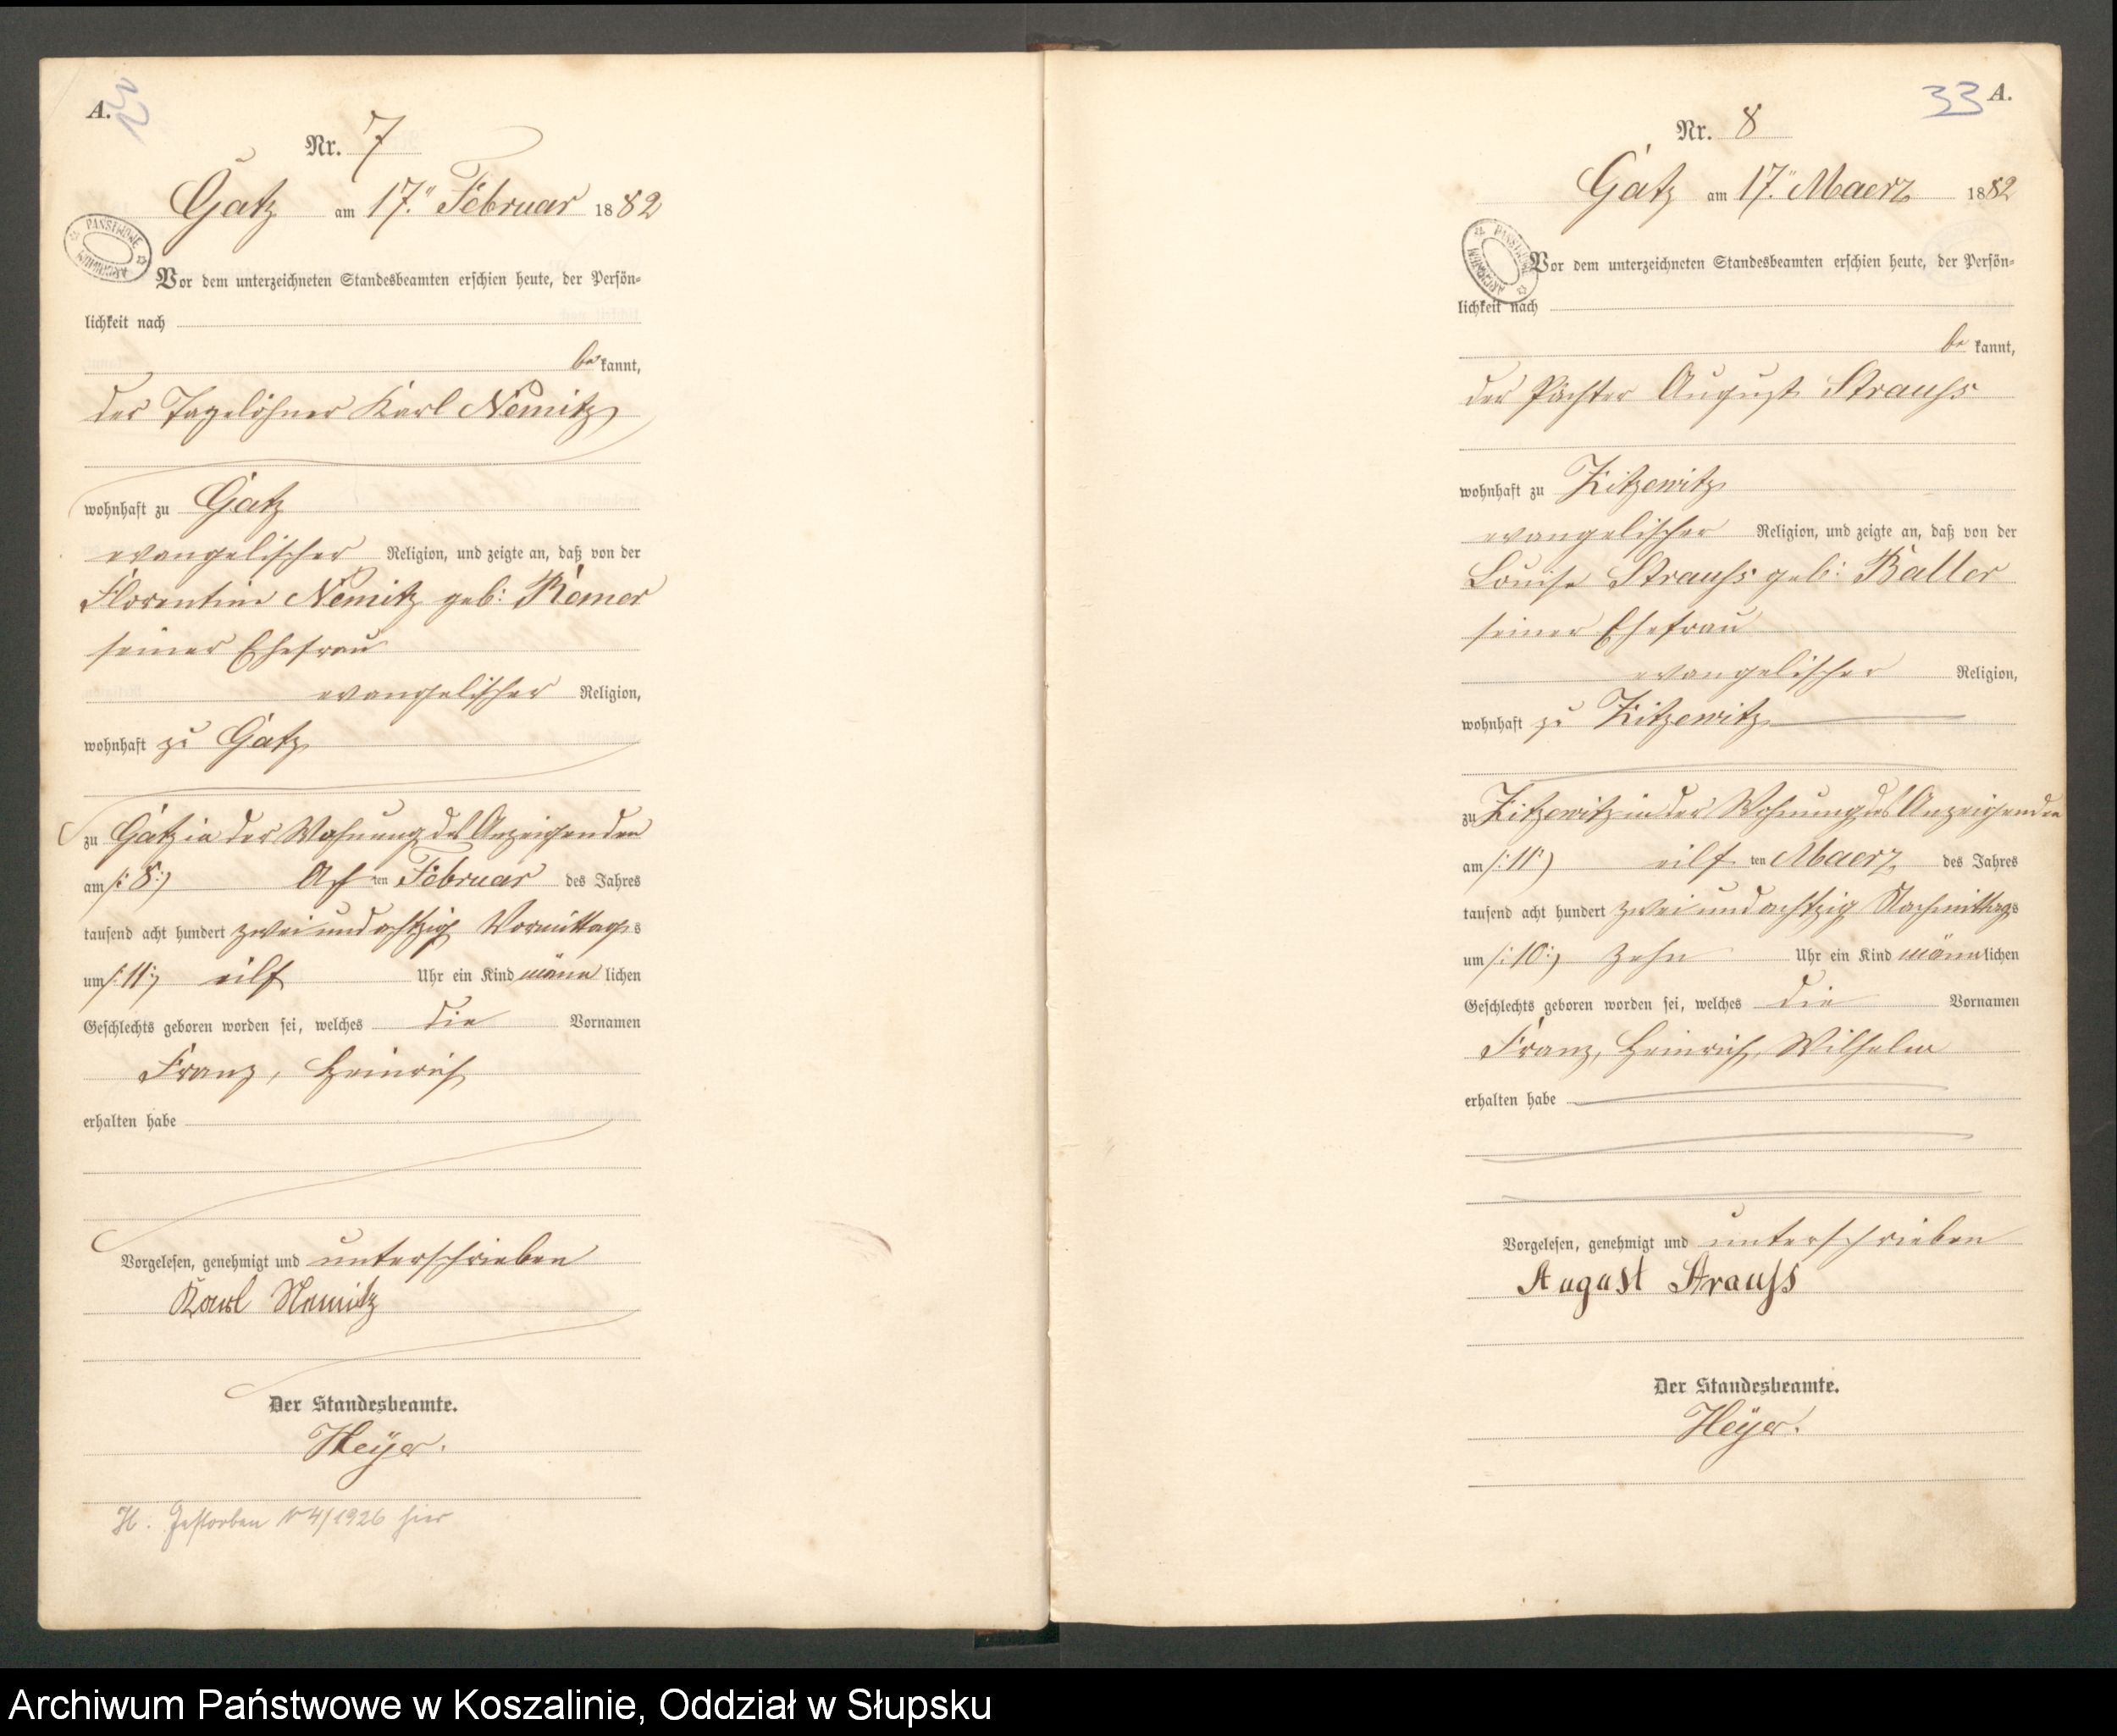 A.
Nr. 7
Gatz am 17. Februar 1882
PAŃSTWOWE ARCHIWUM
Vor dem unterzeichneten Standesbeamten erschien heute, der Persön-
lichkeit nach
be kannt,
der Tagelöhner Karl Nemitz
wohnhaft zu Gatz
evangelischer Religion, und zeigte an, daß von der
Florentine Nemitz geb: Remer
seiner Ehefrau
evangelischer Religion,
wohnhaft zu Gatz
zu Gatz in der Wohnung des Anzeigenden
am /: 8 :/ Ach ten Februar des Jahres
tausend acht hundert zwei und achtzig Vormittags
um /: 11 :/ eilf Uhr ein Kind männ lichen
Geschlechts geboren worden sei, welches die Vornamen
Franz, Heinrich
erhalten habe
Vorgelesen, genehmigt und unterschrieben
Karl Nemitz
Der Standesbeamte.
Heyer.
H. Gestorben N 4/1926 hier
33 A.
Nr. 8
Gatz am 17. Maerz 1882
PAŃSTWOWE ARCHIWUM
Vor dem unterzeichneten Standesbeamten erschien heute, der Persön-
lichkeit nach
be kannt,
der Pächter August Strauss
wohnhaft zu Zitzewitz
evangelischer Religion, und zeigte an, daß von der
Louise Strauss geb: Baller
seiner Ehefrau
evangelischer Religion,
wohnhaft zu Zitzewitz
zu Zitzewitz in der Wohnung des Anzeigenden
am /: 11 :/ eilf ten Maerz des Jahres
tausend acht hundert zwei und achtzig Nachmittags
um /: 10 :/ zehn Uhr ein Kind männlichen
Geschlechts geboren worden sei, welches die Vornamen
Franz, Heinrich, Wilhelm
erhalten habe
Vorgelesen, genehmigt und unterschrieben
August Strauss
Der Standesbeamte.
Heyer.
Archiwum Państwowe w Koszalinie, Oddział w Słupsku